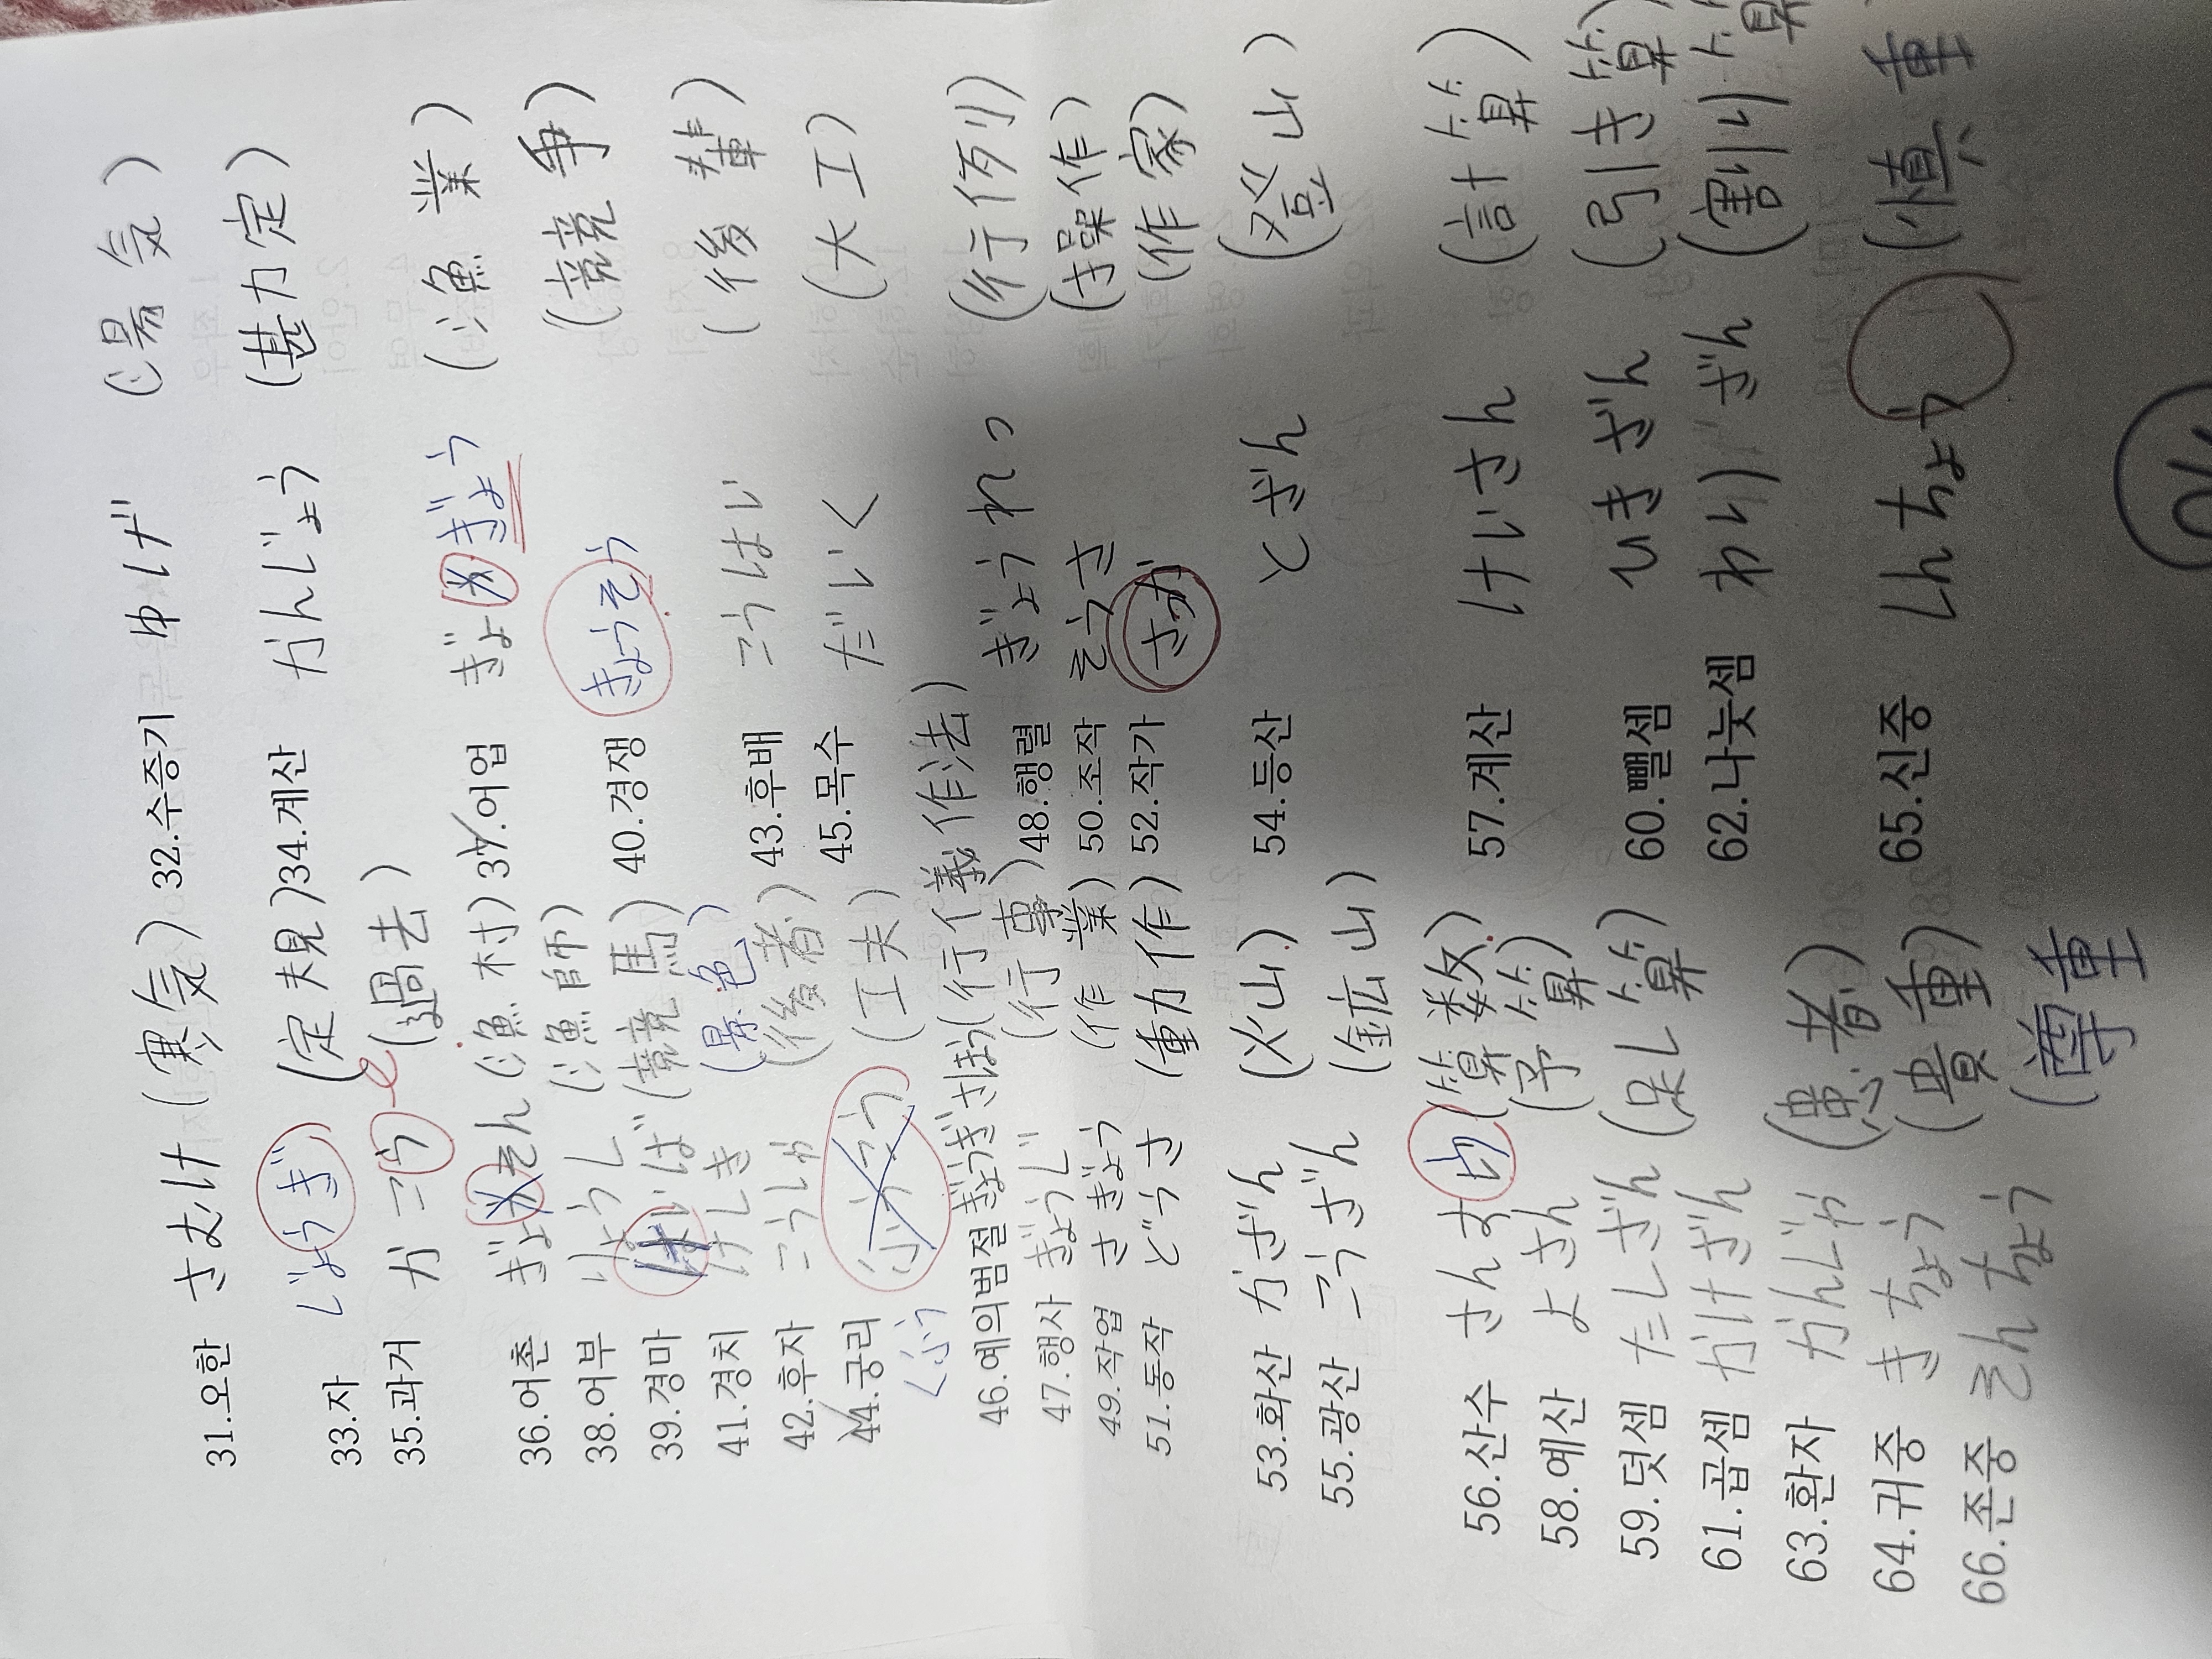 31.오한 さむけ (寒気) 32.수증기 ゆげ (湯気)
33.자 じょうぎ (定規) 34.계산 かんじょう (勘定)
35.과거 かこ (過去)
36.어촌 ぎょそん (漁村) 37.어업 ぎょぎょう (漁業)
38.어부 りょうし (漁師)
39.경마 けいば (競馬) 40.경쟁 きょうそう (競争)
41.경치 けしき (景色)
42.후자 こうしゃ (後者) 43.후배 こうはい (後輩)
44.궁리 くふう (工夫) 45.목수 だいく (大工)
46.예의범절 ぎょうぎさほう (行儀作法)
47.행사 ぎょうじ (行事) 48.행렬 ぎょうれつ (行列)
49.작업 さぎょう (作業) 50.조작 そうさ (操作)
51.동작 どうさ (動作) 52.작가 さっか (作家)
53.화산 かざん (火山) 54.등산 とざん (登山)
55.광산 こうざん (鉱山)
56.산수 さんすう (算数) 57.계산 けいさん (計算)
58.예산 よさん (予算)
59.덧셈 たしざん (足し算) 60.뺄셈 ひきざん (引き算)
61.곱셈 かけざん 62.나눗셈 わりざん (割り算
63.환자 かんじゃ (患者)
64.귀중 きちょう (貴重) 65.신중 しんちょう (慎重
66.존중 そんちょう (尊重